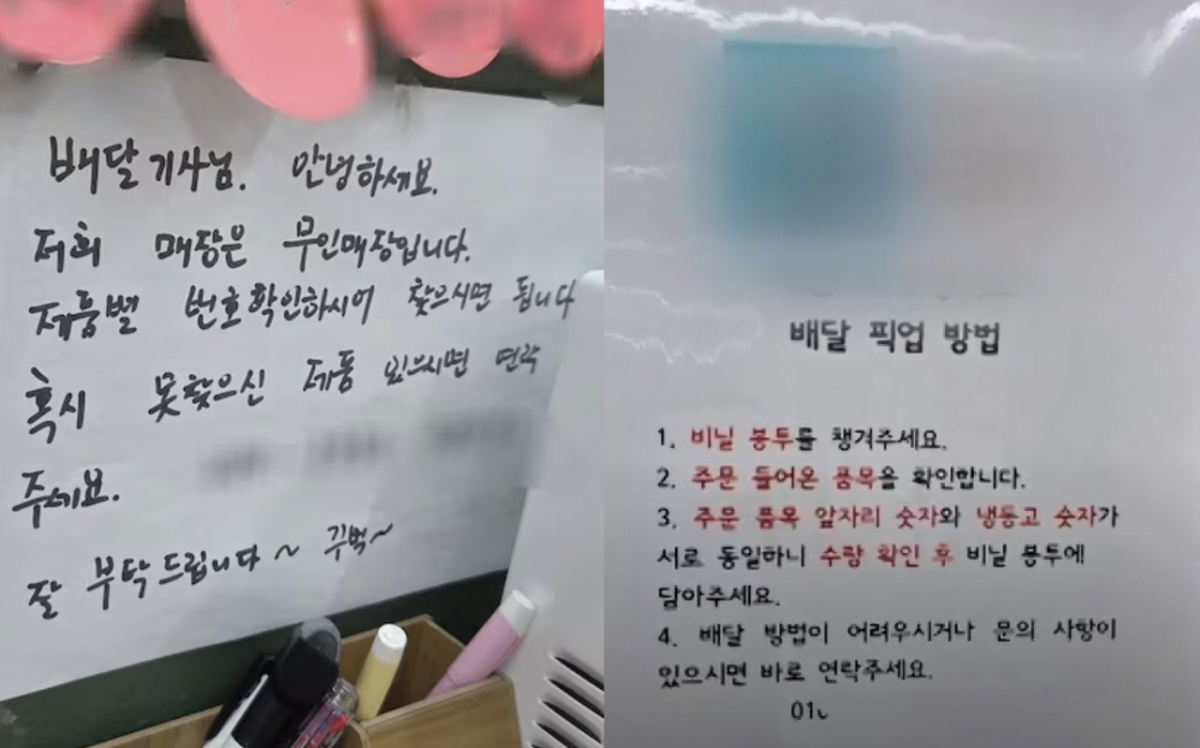 배달 기사님. 안녕하세요.
저희 매장은 무인매장입니다.
제품별 번호확인하시어 찾으시면 됩니다
혹시 못찾으신 제품 있으시면 연락
주세요.
잘 부탁드립니다~ 꾸벅~
배달 픽업 방법
1. 비닐 봉투를 챙겨주세요.
2. 주문 들어온 품목을 확인합니다.
3. 주문 품목 앞자리 숫자와 냉동고 숫자가
서로 동일하니 수량 확인 후 비닐 봉투에
담아주세요.
4. 배달 방법이 어려우시거나 문의 사항이
있으시면 바로 연락주세요.
01